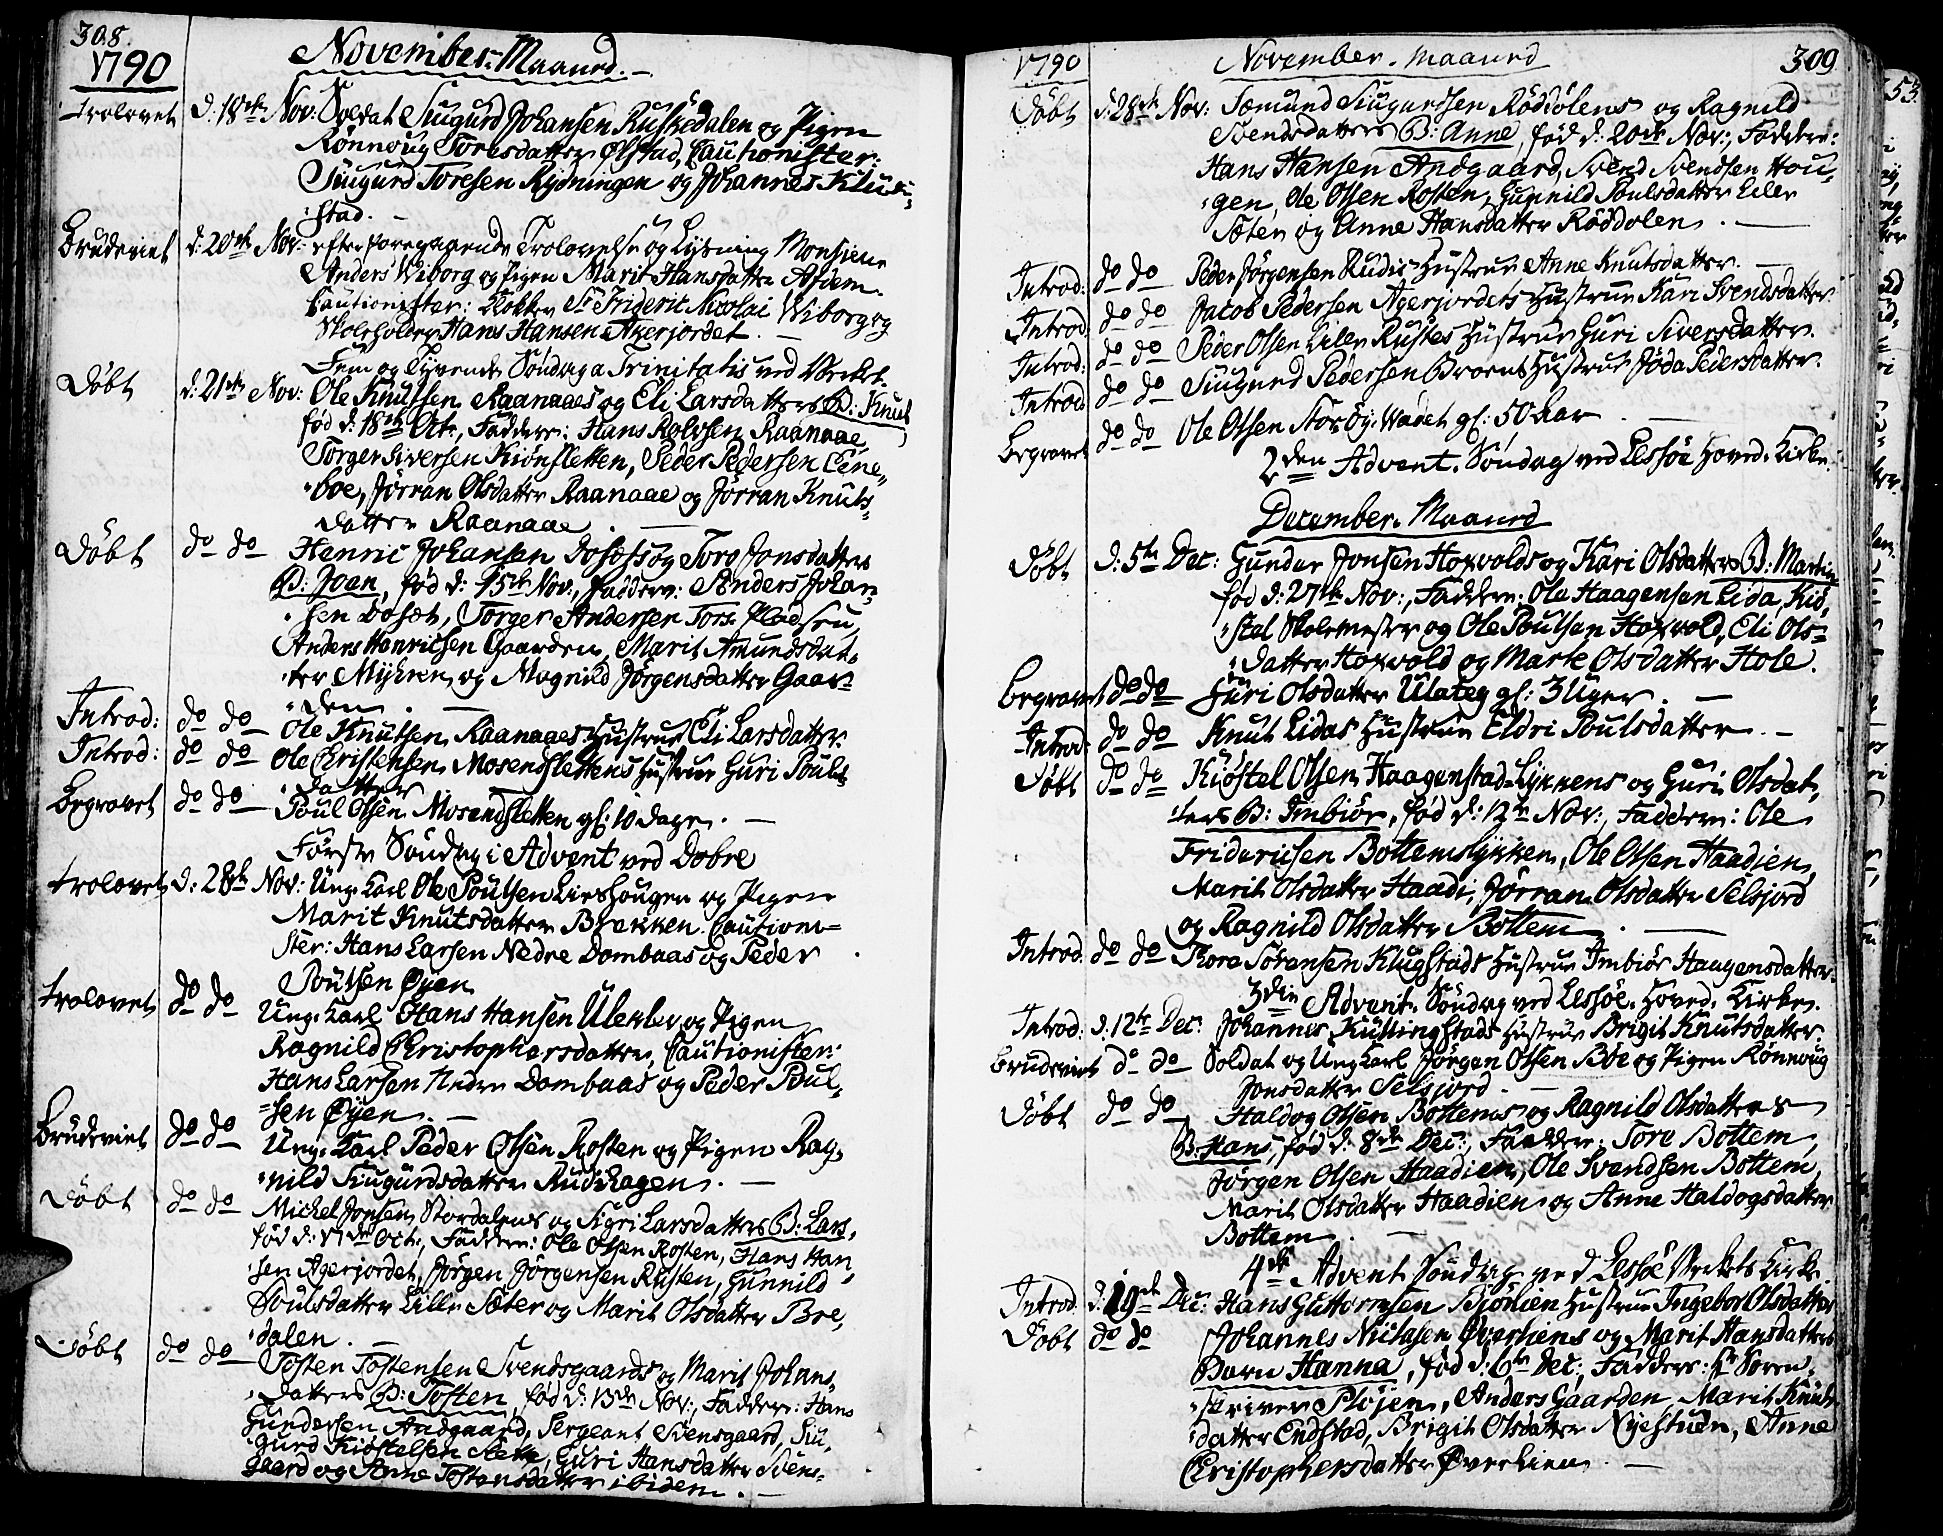 308.
1790
November. Maaned.
Trolovet d: 18de Nov: Soldat Siugurd Johansen Ruskedalen og Pigen
Rønnoug Toresdatter Ølstad, Cautionister:
Siugurd Toresen Rydningen og Johannes Klin-
stad.
Brudeviet d: 20de Nov: efter foregaaende Trolovelse og Lysning Monsieur
Anders Wiborg og Pigen Marit Hansdatter Afdem.
Cautionister: Klokker Sr Frideric Nicolai Wiborg og
Skoleholder Hans Hansen Agerjordet.
Fem og Tyvende Søndag a Trinitatis ved Verket.
Døbt d: 21de Nov: Ole Knutsen Raanaaes og Eli Larsdatters B: Knut
fød d: 18de Oct:, Faddere: Hans Rolvsen Raanaae,
Torger Siversen Kiønsletten, Peder Pedersen Eine-
boe, Jørran Olsdatter Raanaae og Jørran Knuts-
datter Raanaae.
Døbt do do Henric Johansen Dosets og Toro Jonsdatters
B: Joan, fød d: 15de Nov:, Faddere: Anders Johan-
sen Doset, Torger Andersen Tors Pladsen,
Anders Henricsen Gaarden, Marit Amundsdat-
ter Myhren og Magnild Jørgensdatter Gaar-
den.
Introd: do do Ole Knutsen Raanaaes Hustrue Eli Larsdatter.
Introd: do do Ole Christensen Mosendslettens Hustrue Guri Pouls-
datter
Begravet do do Poul Olsen Mosendsletten gl: 10 Dage.
Første Søndag i Advent ved Dovre
Trolovet d: 28de Nov: Ung Karl Ole Poulsen Lieshougen og Pigen
Marit Knutsdatter Brekken. Cautioni-
ster: Hans Larsen Nedre Dombaas og Peder
Poulsen Øyen
Trolovet do do Ung Karl Hans Hansen Ulekler og Pigen
Ragnild Christophersdatter, Cautionister:
Hans Larsen Nedre Dombaas og Peder Poul-
sen Øyen.
Brudeviet do do Ung Karl Peder Olsen Rosten og Pigen Rag-
nild Siugurdsdatter Rudihagen.
Døbt do do Michel Jonsen Stordalens og Sigri Larsdatters B: Lars,
fød d: 17de Oct:, Faddere: Ole Olsen Rosten, Hans Han-
sen Agerjordet, Jørgen Jørgensen Rusten, Gunnild
Poulsdatter Lille Sæter og Marit Olsdatter Bre-
dalen.
Døbt do do Tosten Tostensen Svendsgaards og Marit Johans-
datters B: Tosten, fød d: 13de Nov:, Faddere: Hans
Gundersen Andgaard, Sergeant Svensgaard, Siu-
gurd Kiøstelsen Slette, Guri Hansdatter Svens-
gaard og Anne Tostensdatter ibidem.
1790
November. Maaned
309
Døbt d: 28de Nov: Sæmund Siugurdsen Røddølens og Ragnild
Svendsdatters B: Anne, fød d: 20de Nov:, Faddere:
Hans Hansen Andgaard, Svend Svendsen Hou-
gen, Ole Olsen Rosten, Gunnild Poulsdatter Lille
Sæter og Anne Hansdatter Røddølen.
Introd: do do Peder Jørgensen Rudis Hustrue Anne Knutsdatter.
Introd do do Jacob Pedersen Agerjordets Hustrue Kari Svendsdatter.
Introd: do do Peder Olsen Lille Rustes Hustrue Guri Siversdatter.
Introd do do Siugurd Pedersen Broens Hustrue Jøda Pedersdatter.
Begravet do do Ole Olsen Storøy Wadet gl: 50 Aar.
2den Advent. Søndag ved Lessøe Hoved. Kirke.
December. Maaned
Døbt d: 5te Dec: Gunder Jonsen Horvolds og Kari Olsdatters B: Martin
fød d: 27de Nov:, Faddere: Ole Haagensen Lida, Kiø-
stal Skolemester og Ole Poulsen Horvold, Eli Ols-
datter Horvold og Marte Olsdatter Hole.
Begravet do do Guri Olsdatter Ulateg gl: 3 Uger.
Introd do do Knut Lidas Hustrue Eldri Poulsdatter.
Døbt do do Kiøstel Olsen Haagenstad-Lykkens og Guri Olsdat-
ters B: Imbiør, fød d: 12te Nov:, Faddere: Ole
Fridericsen Bottemslykken, Ole Olsen Haadien,
Marit Olsdatter Haadi, Jørran Olsdatter Selsjord
og Ragnild Olsdatter Bottem.
Introd. do do Thore Sørensen Klugstads Hustrue Imbiør Haagensdatter.
3die Advent. Søndag ved Lessøe. Hoved. Kirke.
Introd: d: 12te Dec: Johannes Killingstads Hustrue Brigit Knutsdatter.
Brudeviet do do Soldat og Ung Karl Jørgen Olsen Bøe og Pigen Rønnoug
Jonsdatter Selsjord.
Døbt do do Haldog Olsen Bottems og Ragnild Olsdatters
B: Hans, fød d: 8de Dec:, Faddere: Tore Bottem,
Jørgen Olsen Haadien, Ole Svendsen Bottem,
Marit Olsdatter Haadien og Anne Haldogsdatter
Bottem.
4de Advent Søndag ved Lessøe Verkets Kirke
Introd. d: 19de Dec: Hans Guttormsen Bjølien Hustrue Ingebor Olsdatter
Døbt do do Johannes Niclasen Øverliens og Marit Hansdatters
Barn Hanna, fød d: 6te Dec:, Faddere: Hr Soren-
skriver Pløjen, Anders Gaarden, Marit Knuts-
datter Endstad, Brigit Olsdatter Nyestuen, Anne
Christophersdatter Øverlien.